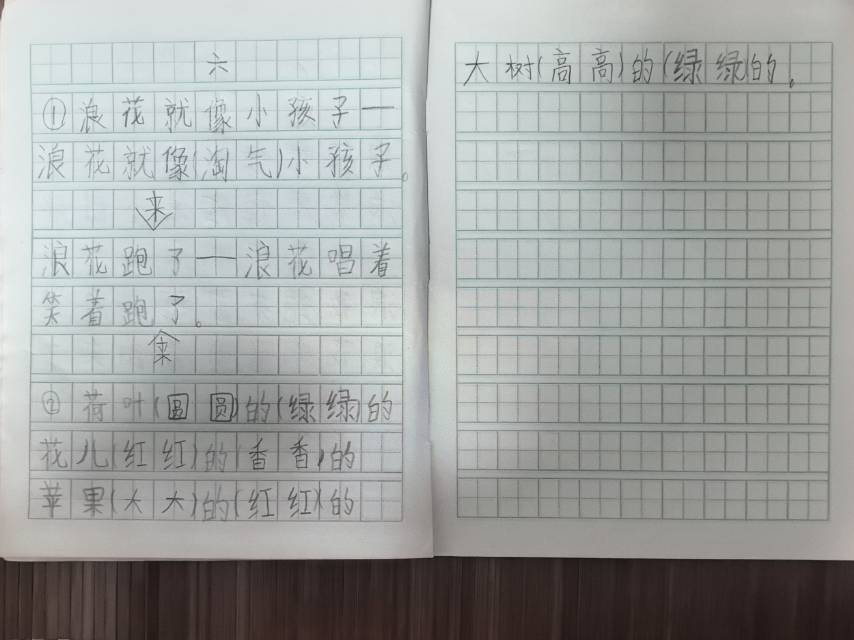 六
①浪花就像小孩子一
浪花就像(淘气)小孩子。
来
浪花跑了一浪花唱着
笑着跑了。
②荷叶(圆圆)的(绿绿的
花儿(红红)的(香香)的
苹果(大大)的(红红)的
大树(高高)的(绿绿的。